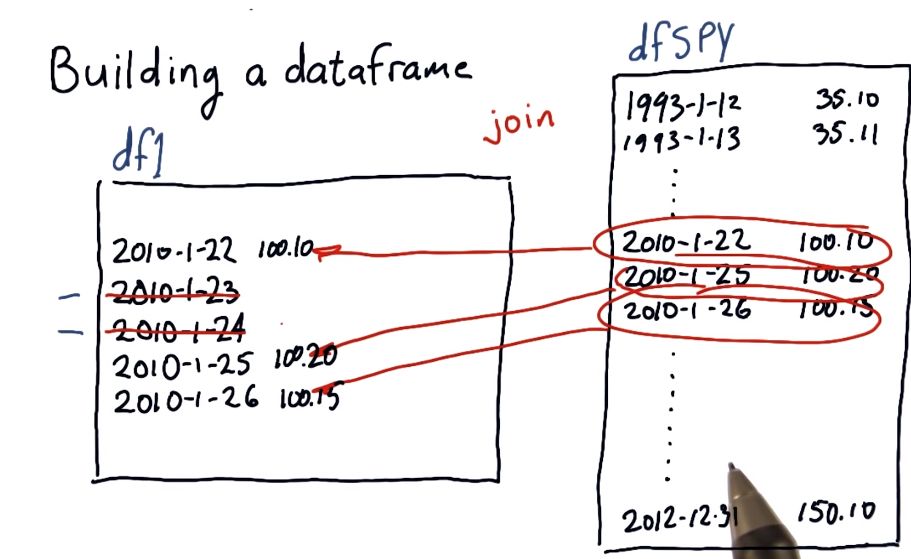 Building a dataframe
df1
2010-1-22 100.10
2010-1-23
2010-1-24
2010-1-25 100.20
2010-1-26 100.15
join
dfSPY
1993-1-12 35.10
1993-1-13 35.11
2010-1-22 100.10
2010-1-25 100.20
2010-1-26 100.15
2012-12-31 150.10